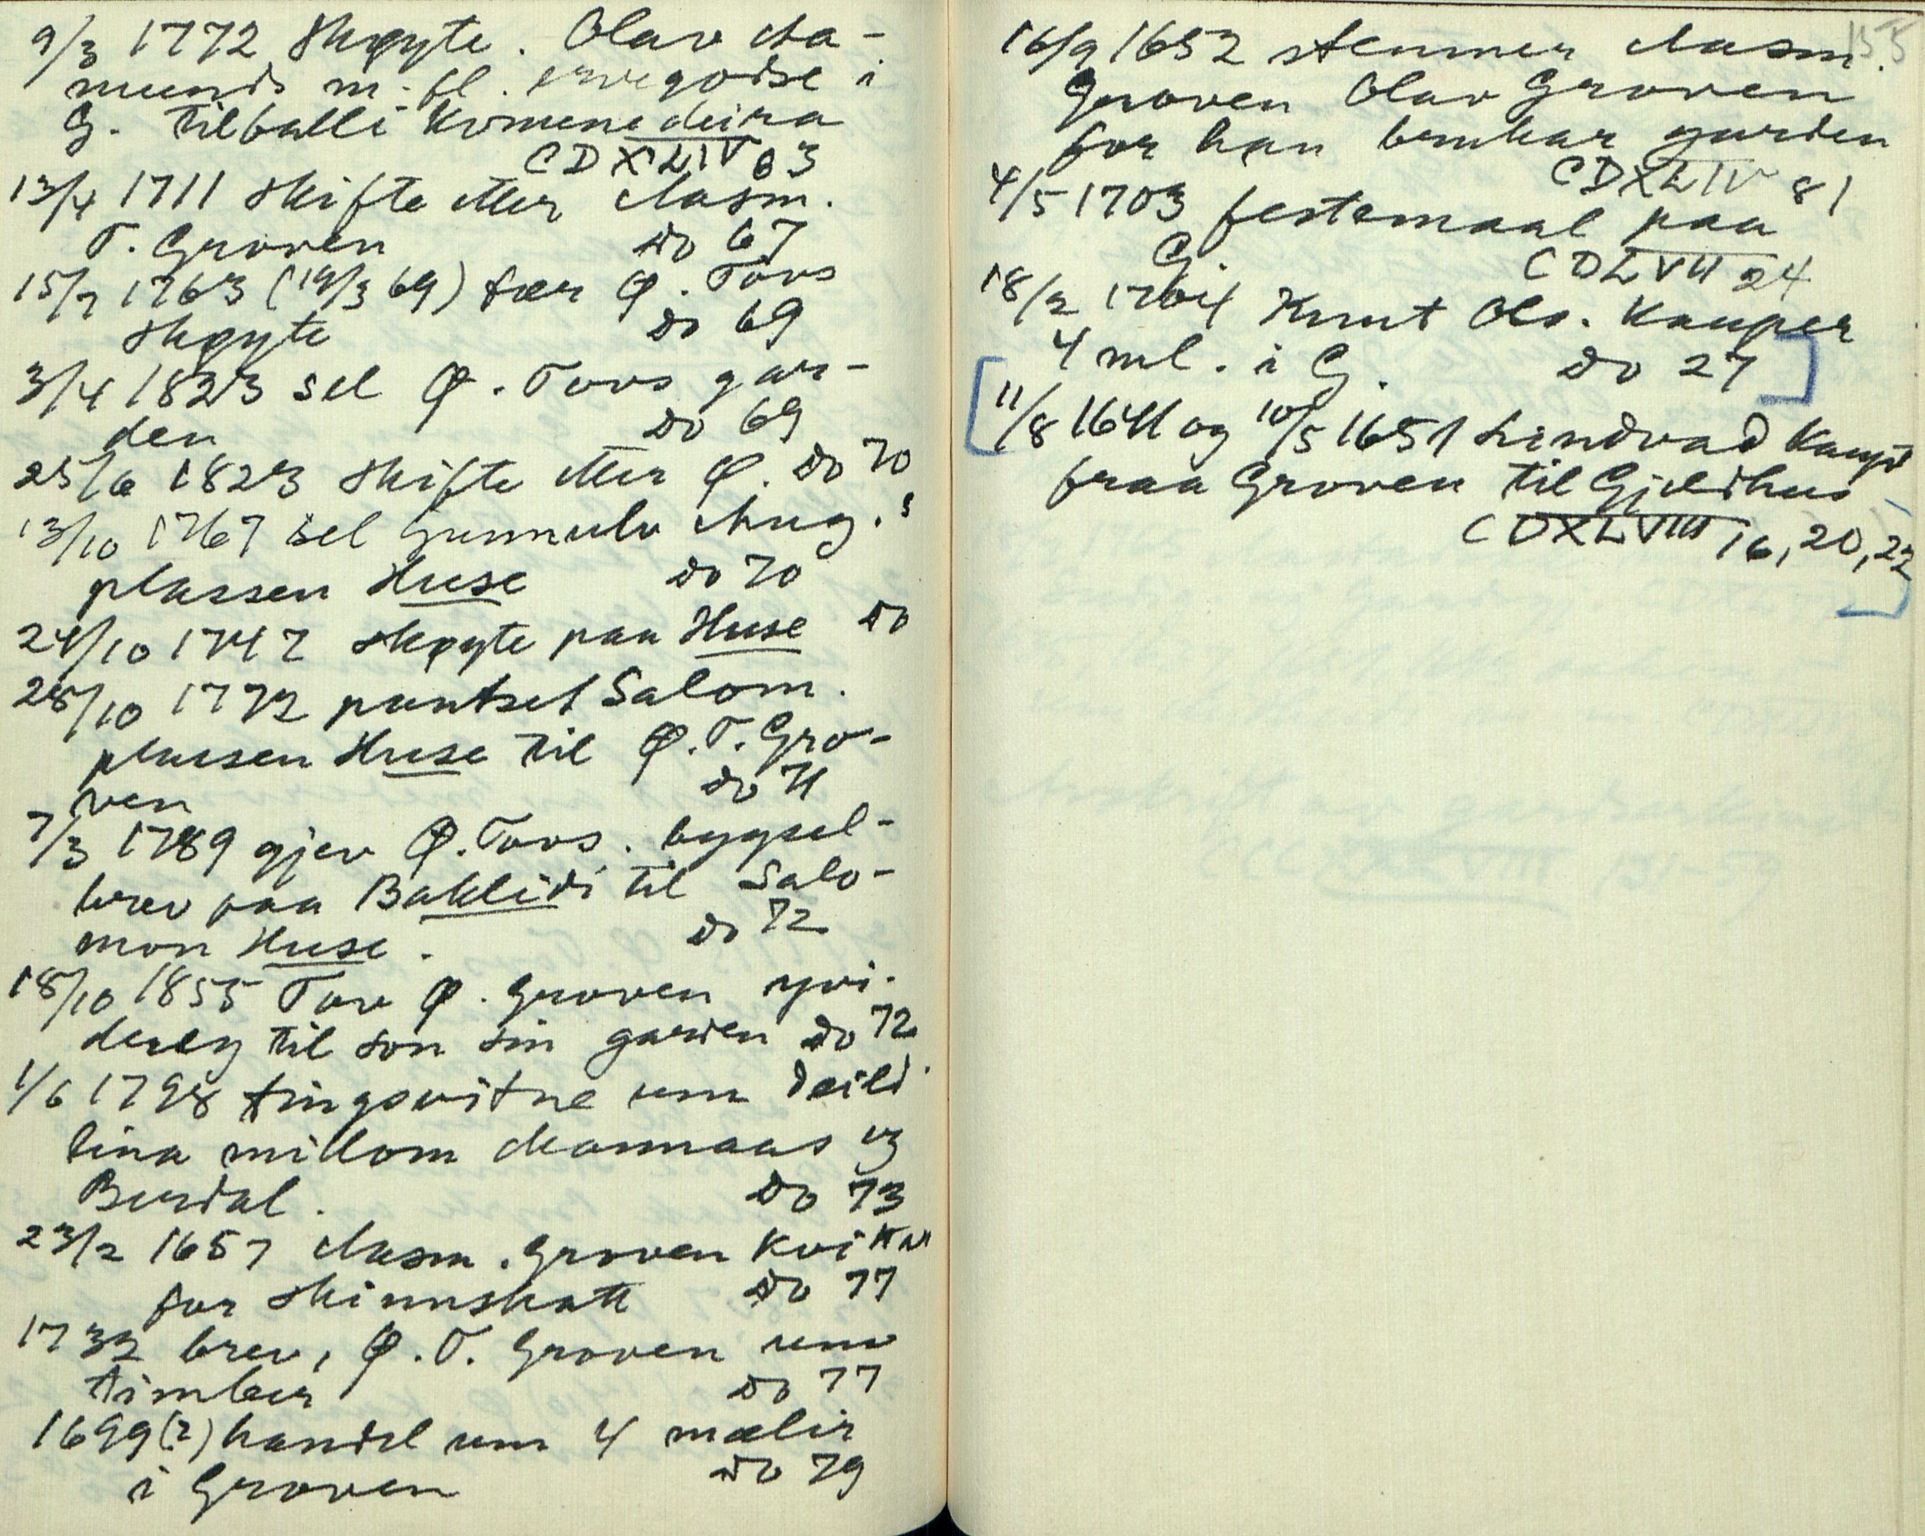 9/3 1772 Skøyte. Olav Aa-
munds m. fl. ervegodse i
G. tilballi kvmenedeira
CDXLIV 63
13/4 1711 Skifte etter Aasm.
T. Groven Do 67
15/7 1763 (19/3 69) fær Ø. Tovs
Skøyte Do 69
3/4 1823 sel Ø. Tovs gar-
den Do 69
25/6 1823 Skifte etter Ø. Do 70
13/10 1767 sel Gunnulv Aug.s
plassen Huse Do 70
24/10 1747 skøyte paa Huse Do
28/10 1772 pantset Salom.
plassen Huse til Ø. T. Gro-
ven Do 71
7/3 1789 gjev Ø. Tovs. bygsel-
brev paa Baklidi til Salo-
mon Huse. Do 72
18/10 1855 Tov Ø. Groven yvi-
dreg til son sin garden Do 72
1/6 1798 tingsvitne um deild
lina millom Mannaas og
Burdal. Do 73
23/2 1657 Aasm. Groven kvittar
for Skinnskatt Do 77
1732 brev, Ø. T. Groven um
timber Do 77
1699(?) handel um 4 mælir
i Groven Do 79
155
16/9 1652 stemner Aasm.
Groven Olav Groven
for han brukar garden
CDXLIV 81
4/5 1703 festemaal paa
G. CDLVII 24
18/2 Knut Olss. Kauper
4 ml. i G. Do 27
11/8 1641 og 10/5 1651 Lindvad Kaupt
fraa Groven til Gjeldhus
CDXLVIII 16, 20, 22